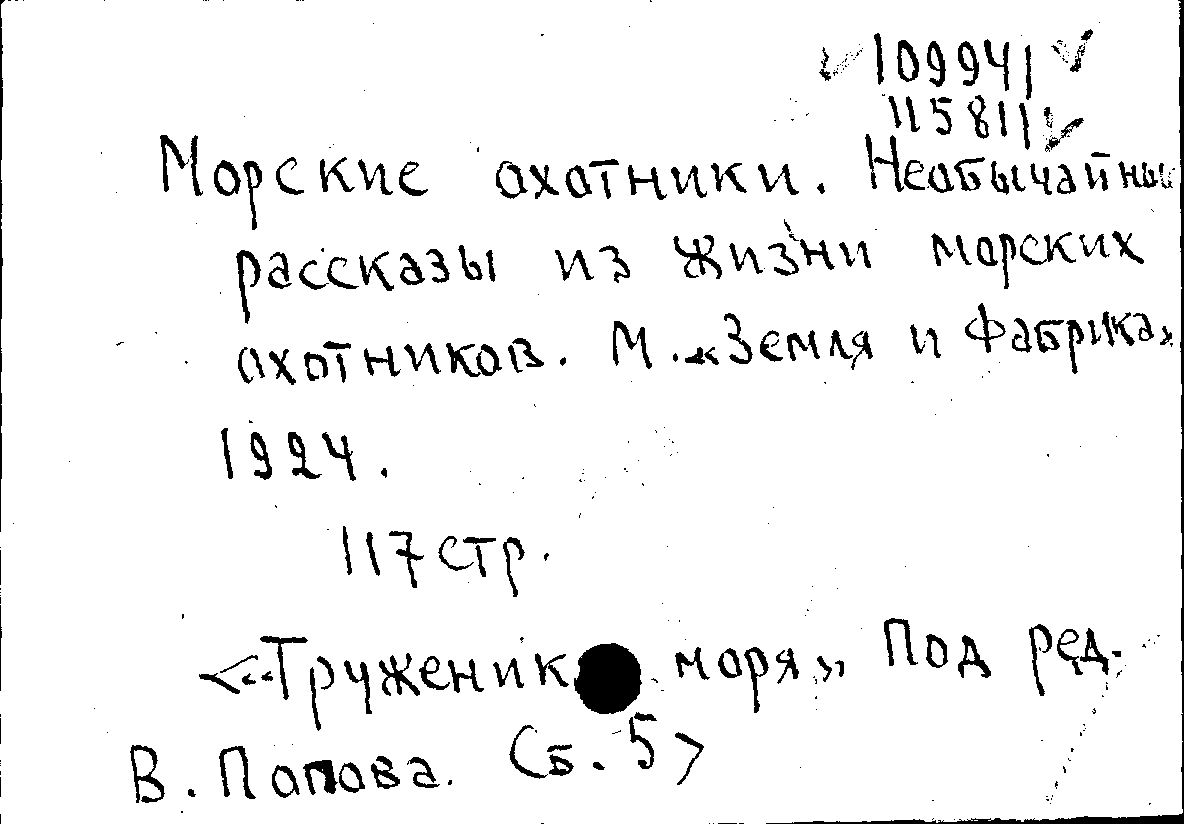 109941
115811
Морские охотники. Необычайные
рассказы из жизни морских
охотников. М. «Земля и Фабрика»
1924.
117 стр.
<"Труженики моря" Под ред.
В. Попова. Сб. 5>